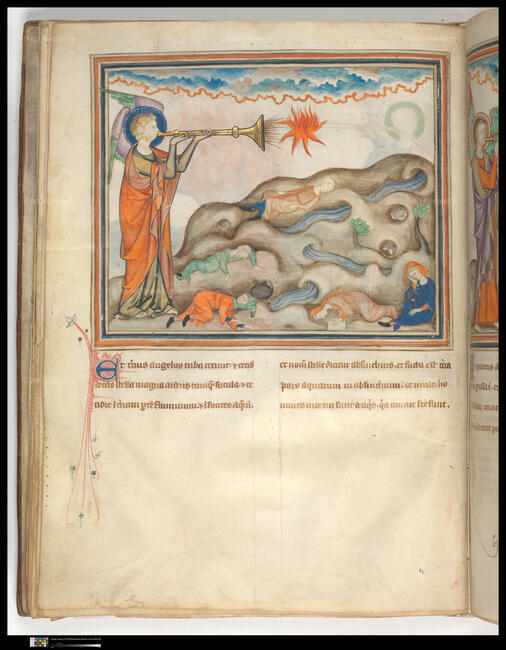 Et tcius angelus tuba cecinit & cecid
celo stella magna ardens tamq̃ facula & ce
cidit ĩ tciam ptẽ fluminum & ĩ fontes aq̃rũ.
et nom̃ stelle dicitur absinchius. et facta est tcia
pars aquarum in absinchium. et multi ho
mines mortui sunt de aq̃s. q̃a amare fc̃e sunt.